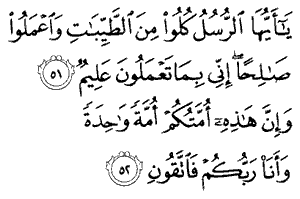 يَٰٓأَيُّهَا ٱلرُّسُلُ كُلُوا۟ مِنَ ٱلطَّيِّبَٰتِ وَٱعْمَلُوا۟
صَٰلِحًا ۖ إِنِّى بِمَا تَعْمَلُونَ عَلِيمٌ ۝٥١
وَإِنَّ هَٰذِهِۦٓ أُمَّتُكُمْ أُمَّةً وَٰحِدَةً
وَأَنَا۠ رَبُّكُمْ فَٱتَّقُونِ ۝٥٢